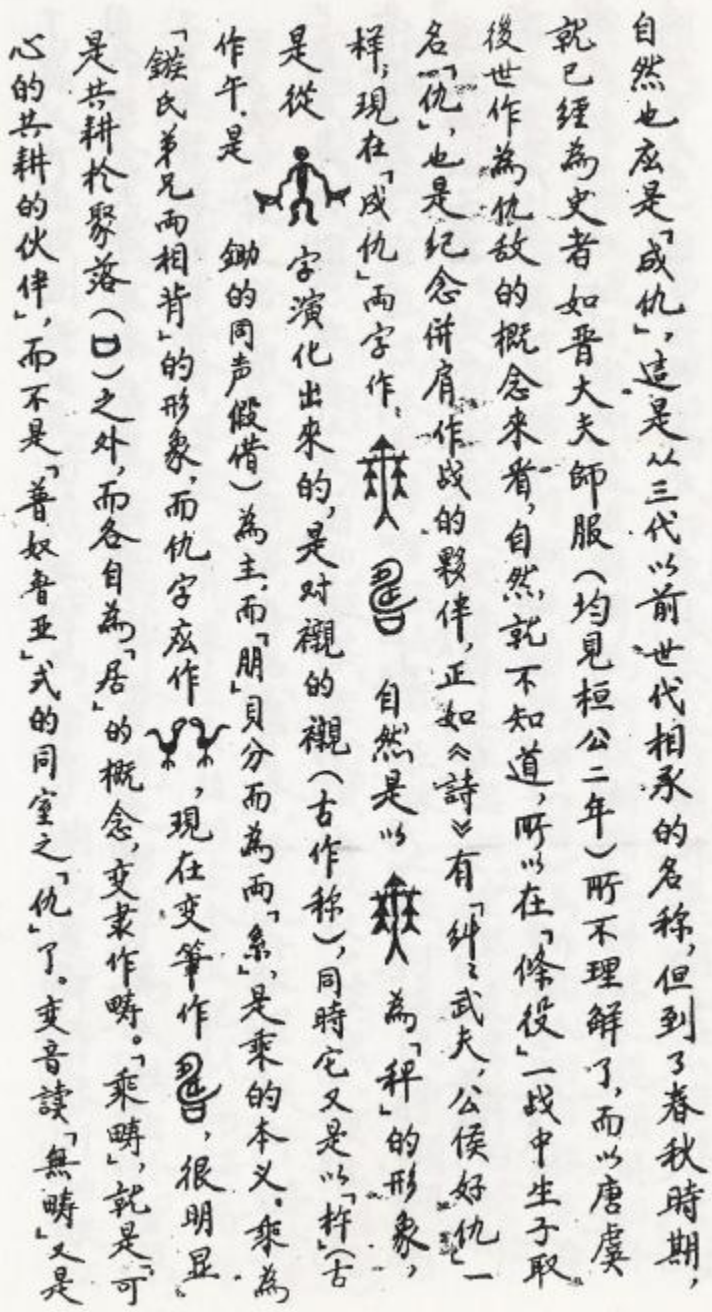 自然也应是「成仇」，這是从三代以前世代相承的名称，但到了春秋時期，
就已經為史者如晋大夫師服（均見桓公二年）所不理解了，而以唐虞
後世作為仇敌的概念來看，自然就不知道，所以在「條役」一战中生子取
名「仇」，也是紀念併肩作战的夥伴，正如《詩》有「糾〻武夫，公侯好仇」一
样，現在「成仇」両字作：自然是以為「秤」的形象，
是從字演化出來的，是对襯的襯（古作称），同時它又是以「杵」（古
作午，是鋤的同声假借）為主，而「朋」貝分而為両「系」，是乘的本义。乘為
「鏃氏弟兄而相背」的形象，而仇字应作，現在变筆作，很明显
是共耕於聚落（）之外，而各自為「居」的概念，变隶作疇。「乘疇」，就是「可
心的共耕的伙伴」，而不是「普奴鲁亚」式的同室之「仇」了。变音讀「無疇」又是